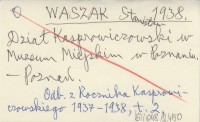 WASZAK Stanisław 1938.
Dział Kasprowiczowski w
Muzeum Miejskim w Poznaniu.
– Poznań.
Odb. z Rocznika Kasprowi-
czowskiego 1937–1938, t. 2